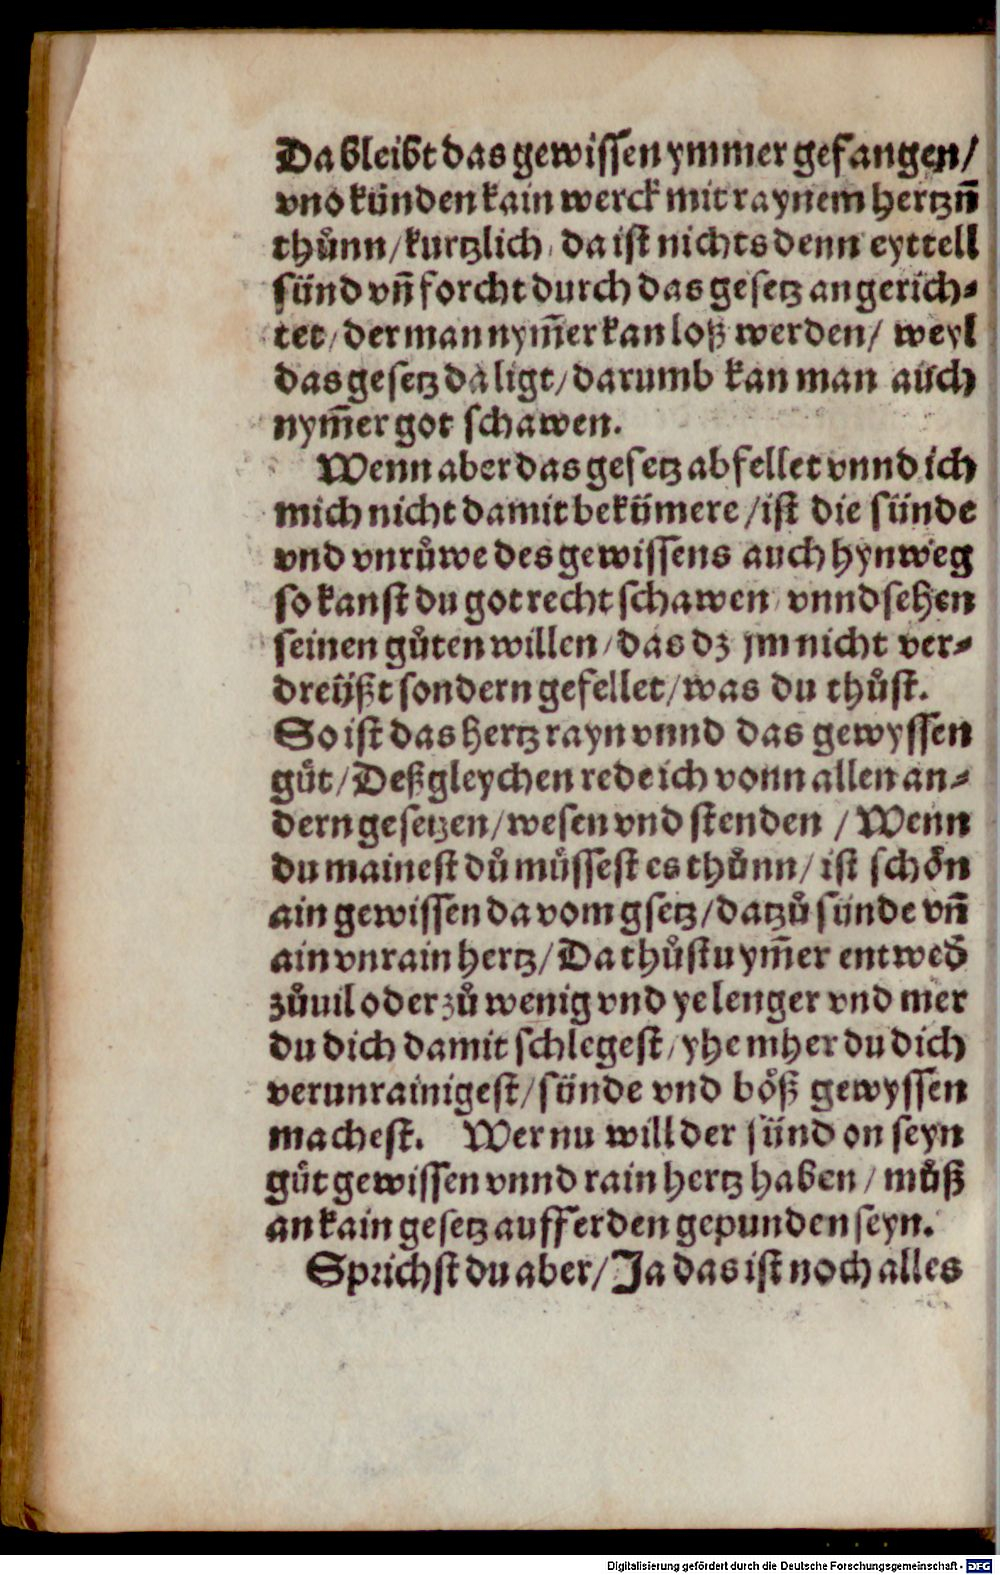 Da bleibt das gewissen ymmer gefangen/
vnd künden kain werck mit raynem hertzn̄
thůnn/kurtzlich, da ist nichts denn eyttell
sünd vn̄ forcht durch das gesetz angerich⸗
tet/der man nym̄er kan loß werden/ weyl
das gesetz da ligt/darumb kan man auch
nym̄er got schawen.
Wenn aber das gesetz abfellet vnnd ich
mich nicht damit bekümere/ist die sünde
vnd vnrůwe des gewissens auch hynweg
so kanst du got recht schawen vnnd sehen
seinen gůten willen/das dz jm nicht ver⸗
dreüßt sondern gefellet/was du thůst.
So ist das hertz rayn vnnd das gewyssen
gůt/Deßgleychen rede ich vonn allen an⸗
dern gesetzen/wesen vnd stenden / Wenn
du mainest dů müssest es thůnn/ist schōn
ain gewissen da vom gsetz/datzů sünde vn̄
ain vnrain hertz/Da thůstu ym̄er entwed̄
zůuil oder zů wenig vnd ye lenger vnd mer
du dich damit schlegest/yhe mher du dich
verunrainigest/sünde vnd böß gewyssen
machest. Wer nu will der sünd on seyn
gůt gewissen vnnd rain hertz haben/ můß
an kain gesetz auff erden gepunden seyn.
Sprichst du aber/Ja das ist noch alles
Digitalisierung gefördert durch die Deutsche Forschungsgemeinschaft - DFG